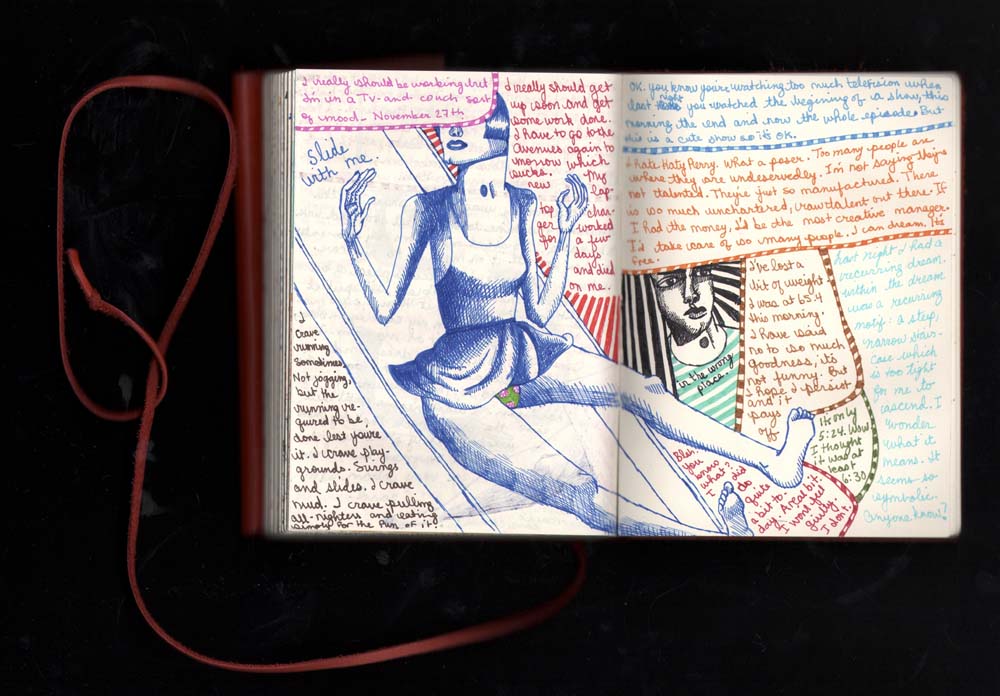 I really should be working but
I'm in a TV-and couch sort
of mood. November 27th
Slide
with me.
I really should get
up soon and get
some work done.
I have to go to the
Avenues again to
morrow which
sucks. My
new lap-
top char-
ger worked
for a few
days
and died
on me.
I
crave
running
sometimes.
Not jogging,
but the
running re-
quired to be,
done lest you're
it. I crave play-
grounds. Swings
and slides. I crave
mud. I crave pulling
all-nighters and eating
simply for the fun of it
OK. you know you're watching too much television when
last night you watched the beginning of a show, this
morning the end and now the whole episode. But
this is a cute show so it's OK.
I hate Katy Perry. What a poser. Too many people are
where they are undeservedly. I'm not saying they's
not talented. They're just so manufactured. There
is so much unchartered, raw talent out there. If
I had the money, I'd be the most creative manager.
I'd take care of so many people. I can dream. It's
free.
in the wrong
place.
I've lost a
bit of weight
I was at 65.4
this morning.
I have said
no to so much
goodness, it's
not funny. But
I hope I persist
and it
pays
off
Last night I had a
recurring dream.
within the dream
was a recurring
motif: a steep,
narrow stair-
case which
is too tight
for me to
ascend. I
wonder
what it
means. It
seems so
symbolic.
Anyone know?
It's only
5:24. Wow
I thought
it was at
least
6:30
Bleh.
You
know
what?
I did
do
quite
a bit to-
day. A real bit.
I won't feel
guilty
I don't.